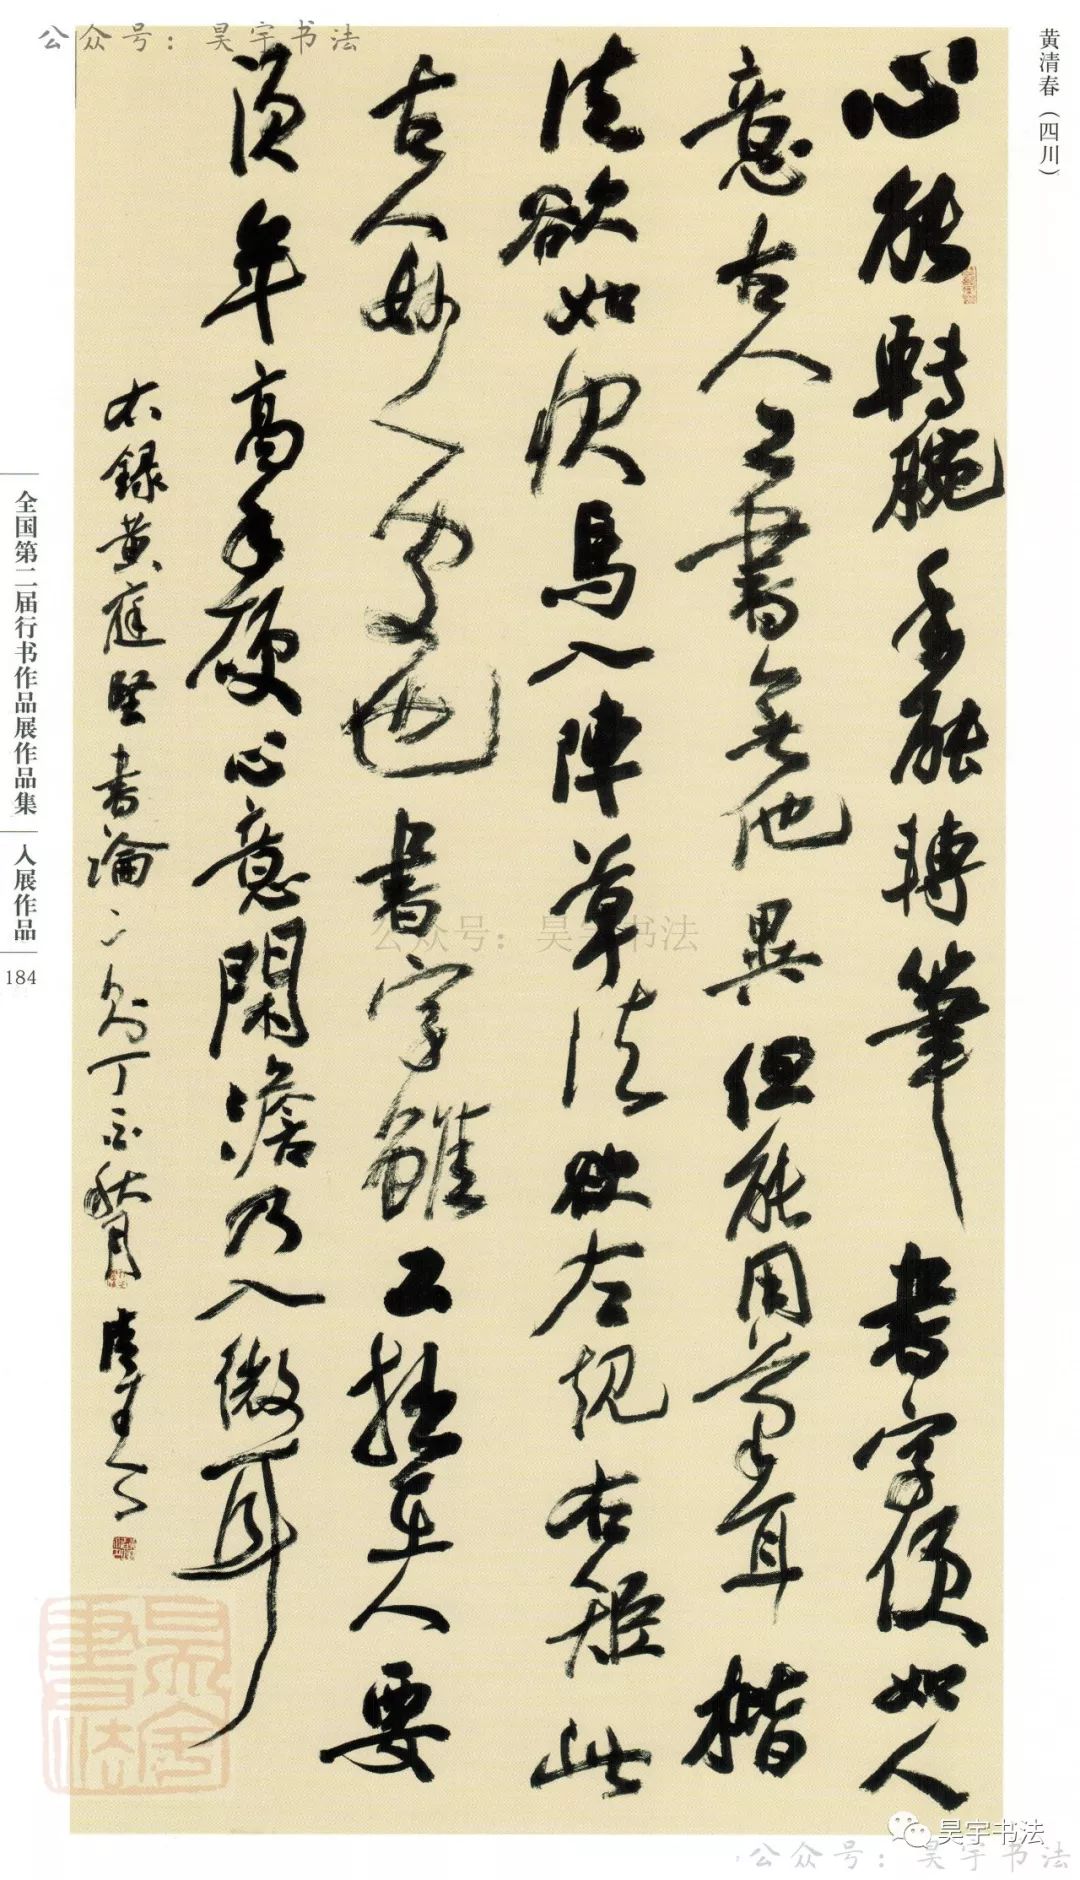 公众号：昊宇书法
黄清春（四川）
心能轉腕手能轉筆書字便如人
意古人工書無他異但能用筆耳楷
法欲如快馬入陣草法欲左規右矩此
古人妙處也書字雖工拙在人要
須年高手硬心意閑澹乃入微耳
右錄黄庭堅書論二則丁酉秋月清春
全国第二届行书作品展作品集
入展作品
184
公众号：昊宇书法
昊宇書法
昊宇书法
公众号：昊宇书法